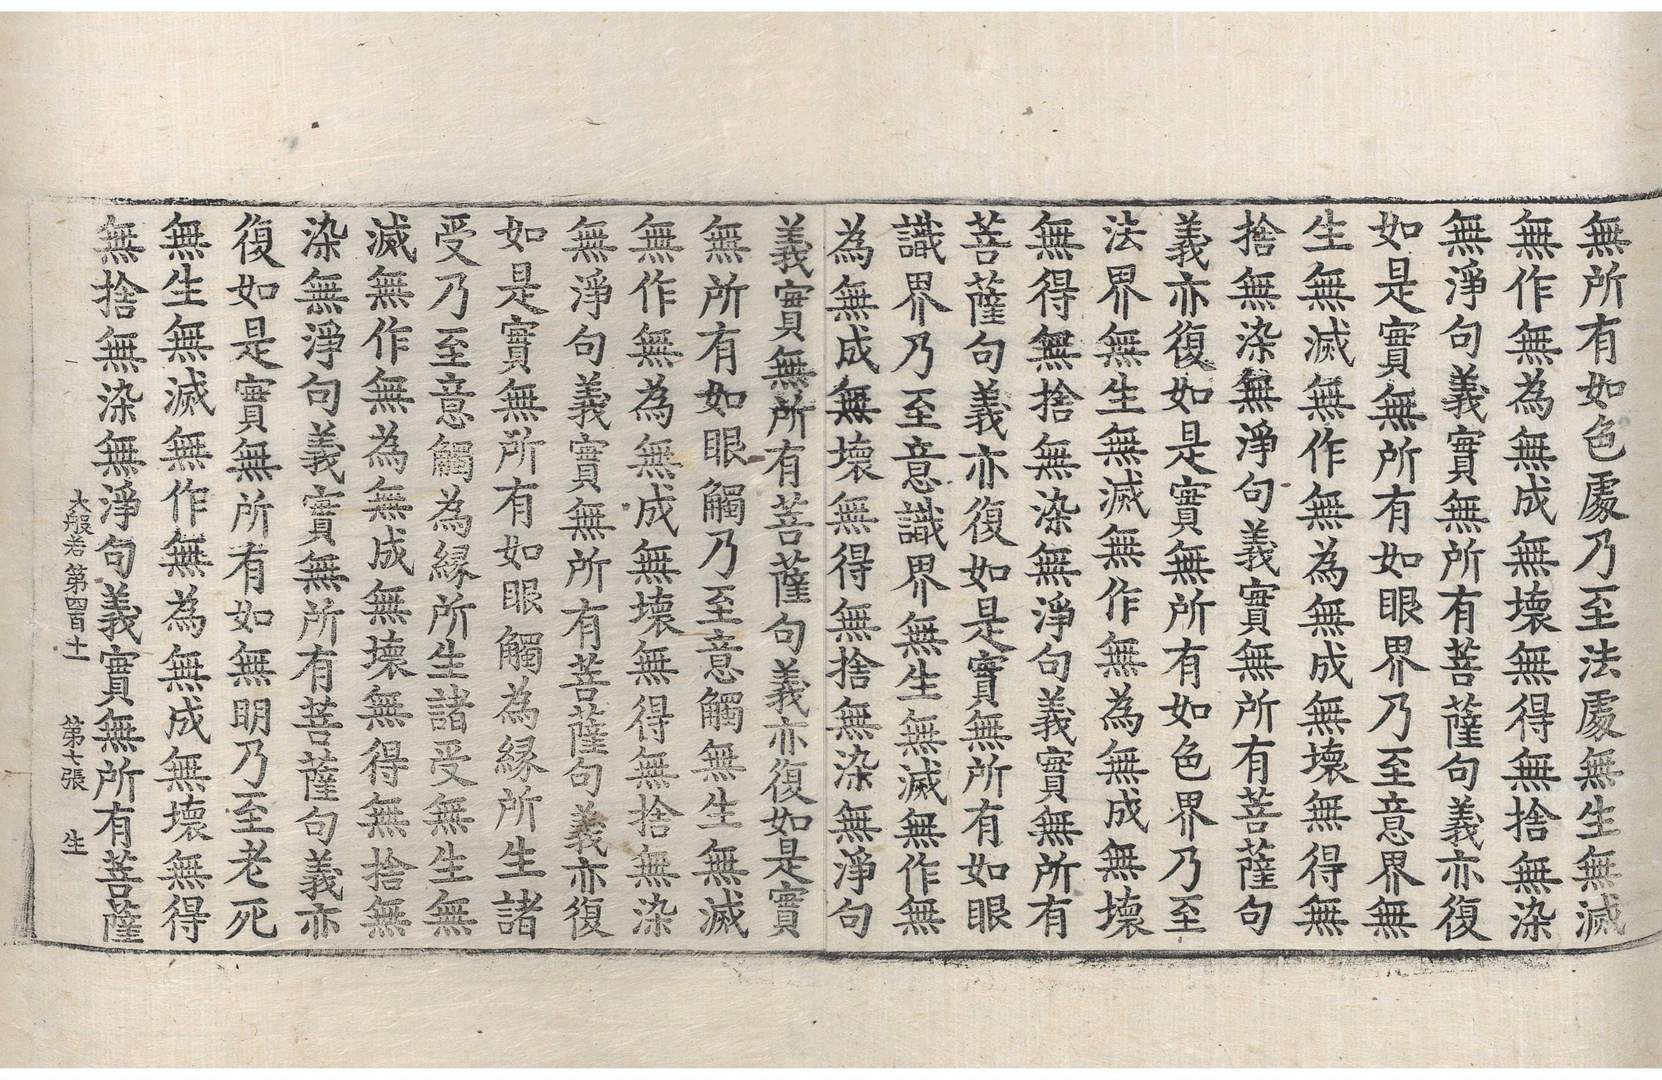 無所有如色處乃至法處無生無滅
無作無為無成無壞無得無捨無染
無淨句義實無所有菩薩句義亦復
如是實無所有如眼界乃至意界無
生無滅無作無為無成無壞無得無
捨無染無淨句義實無所有菩薩句
義亦復如是實無所有如色界乃至
法界無生無滅無作無為無成無壞
無得無捨無染無淨句義實無所有
菩薩句義亦復如是實無所有如眼
識界乃至意識界無生無滅無作無
為無成無壞無得無捨無染無淨句
義實無所有菩薩句義亦復如是實
無所有如眼觸乃至意觸無生無滅
無作無為無成無壞無得無捨無染
無淨句義實無所有菩薩句義亦復
如是實無所有如眼觸為縁所生諸
受乃至意觸為縁所生諸受無生無
滅無作無為無成無壞無得無捨無
染無淨句義實無所有菩薩句義亦
復如是實無所有如無明乃至老死
無生無滅無作無為無成無壞無得
無捨無染無淨句義實無所有菩薩
大般若第四百十一 第七張 生